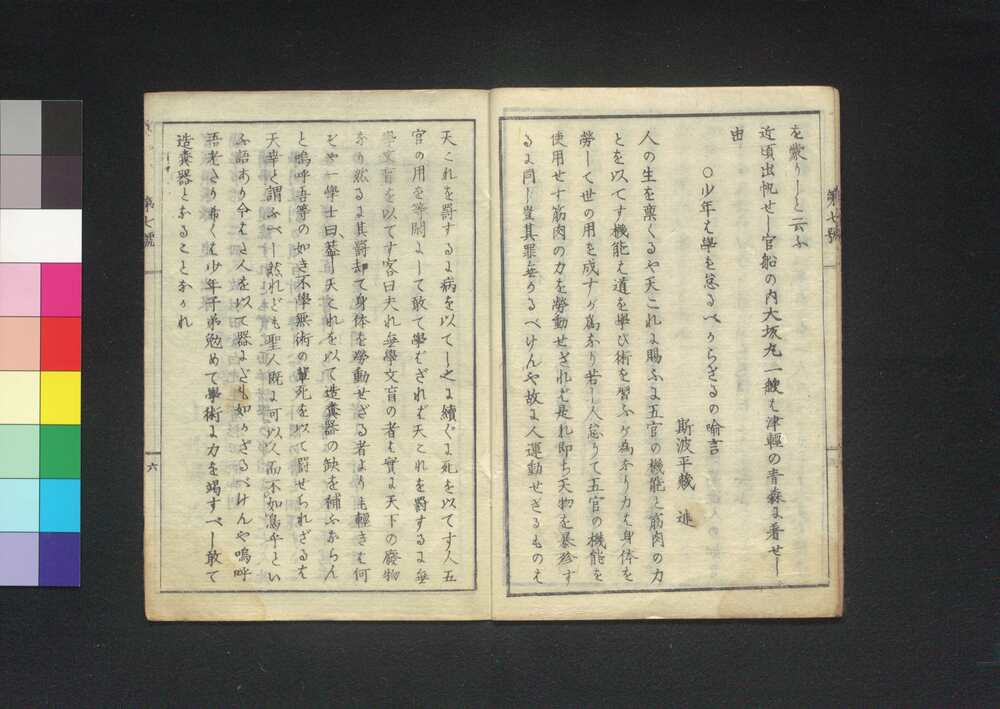 を蒙りしと云ふ
近頃出帆せし官船の内大坂丸一艘は津輕の青森に着せし
由
○少年は學を怠るべからざるの喩言
斯波平藏 述
人の生を稟くるや天これに賜ふに五官の機能と筋肉の力
とを以てす機能は道を學び術を習ふが為なり力は身体を
勞して世の用を成すが為なり若し人怠りて五官の機能を
使用せす筋肉の力を勞動せざれば是れ即ち天物を暴殄す
るに同し豈其罪無かるべけんや故に人運動せざるものは
第七號
天これを罰するに病を以てし之に續ぐに死を以てす人五
官の用を等閑にして敢て學ばざれば天これを罰するに無
學文盲を以てす客曰夫れ無學文盲の者は實に天下の廢物
なり然るに其罰却て身体を勞動せざる者よりも輕きは何
ぞや一學士曰蓋し天これを以て造糞器の缺を補ふならん
と嗚呼吾等の如き不學無術の輩死を以て罰せられざるは
天幸と謂ふべし然れども聖人既に可以人而不如鳥乎とい
ふ語あり今はた人を以て器にだも如かざるべけんや嗚呼
語老たり希くは少年子弟勉めて學術に力を竭すべし敢て
造糞器となることなかれ
第七號
六